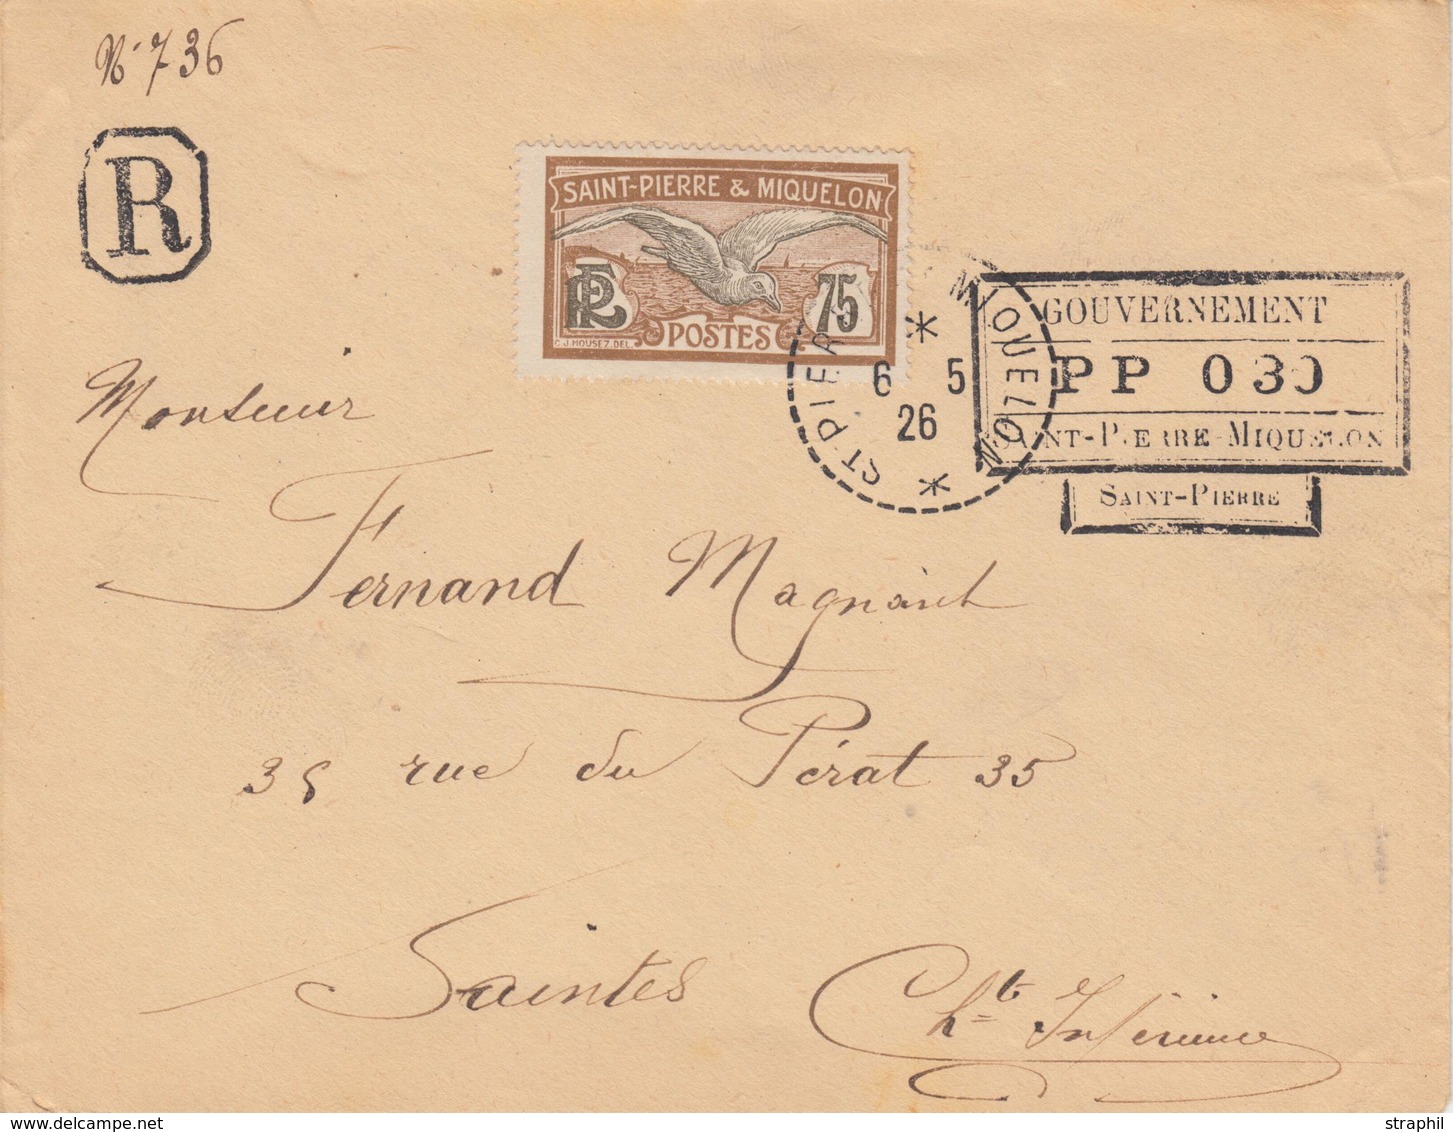 N° 736
R
SAINT-PIERRE & MIQUELON
RF
75
POSTES
C.J. HOUSEZ. DEL.
ST PIERRE MIQUELON
* 6 5 26 *
GOUVERNEMENT
PP 030
SAINT-PIERRE-MIQUELON
SAINT-PIERRE
Monsieur
Fernand
35 rue du Pérat 35
Saintes Chte Inférieure
straphil
www.delcampe.net